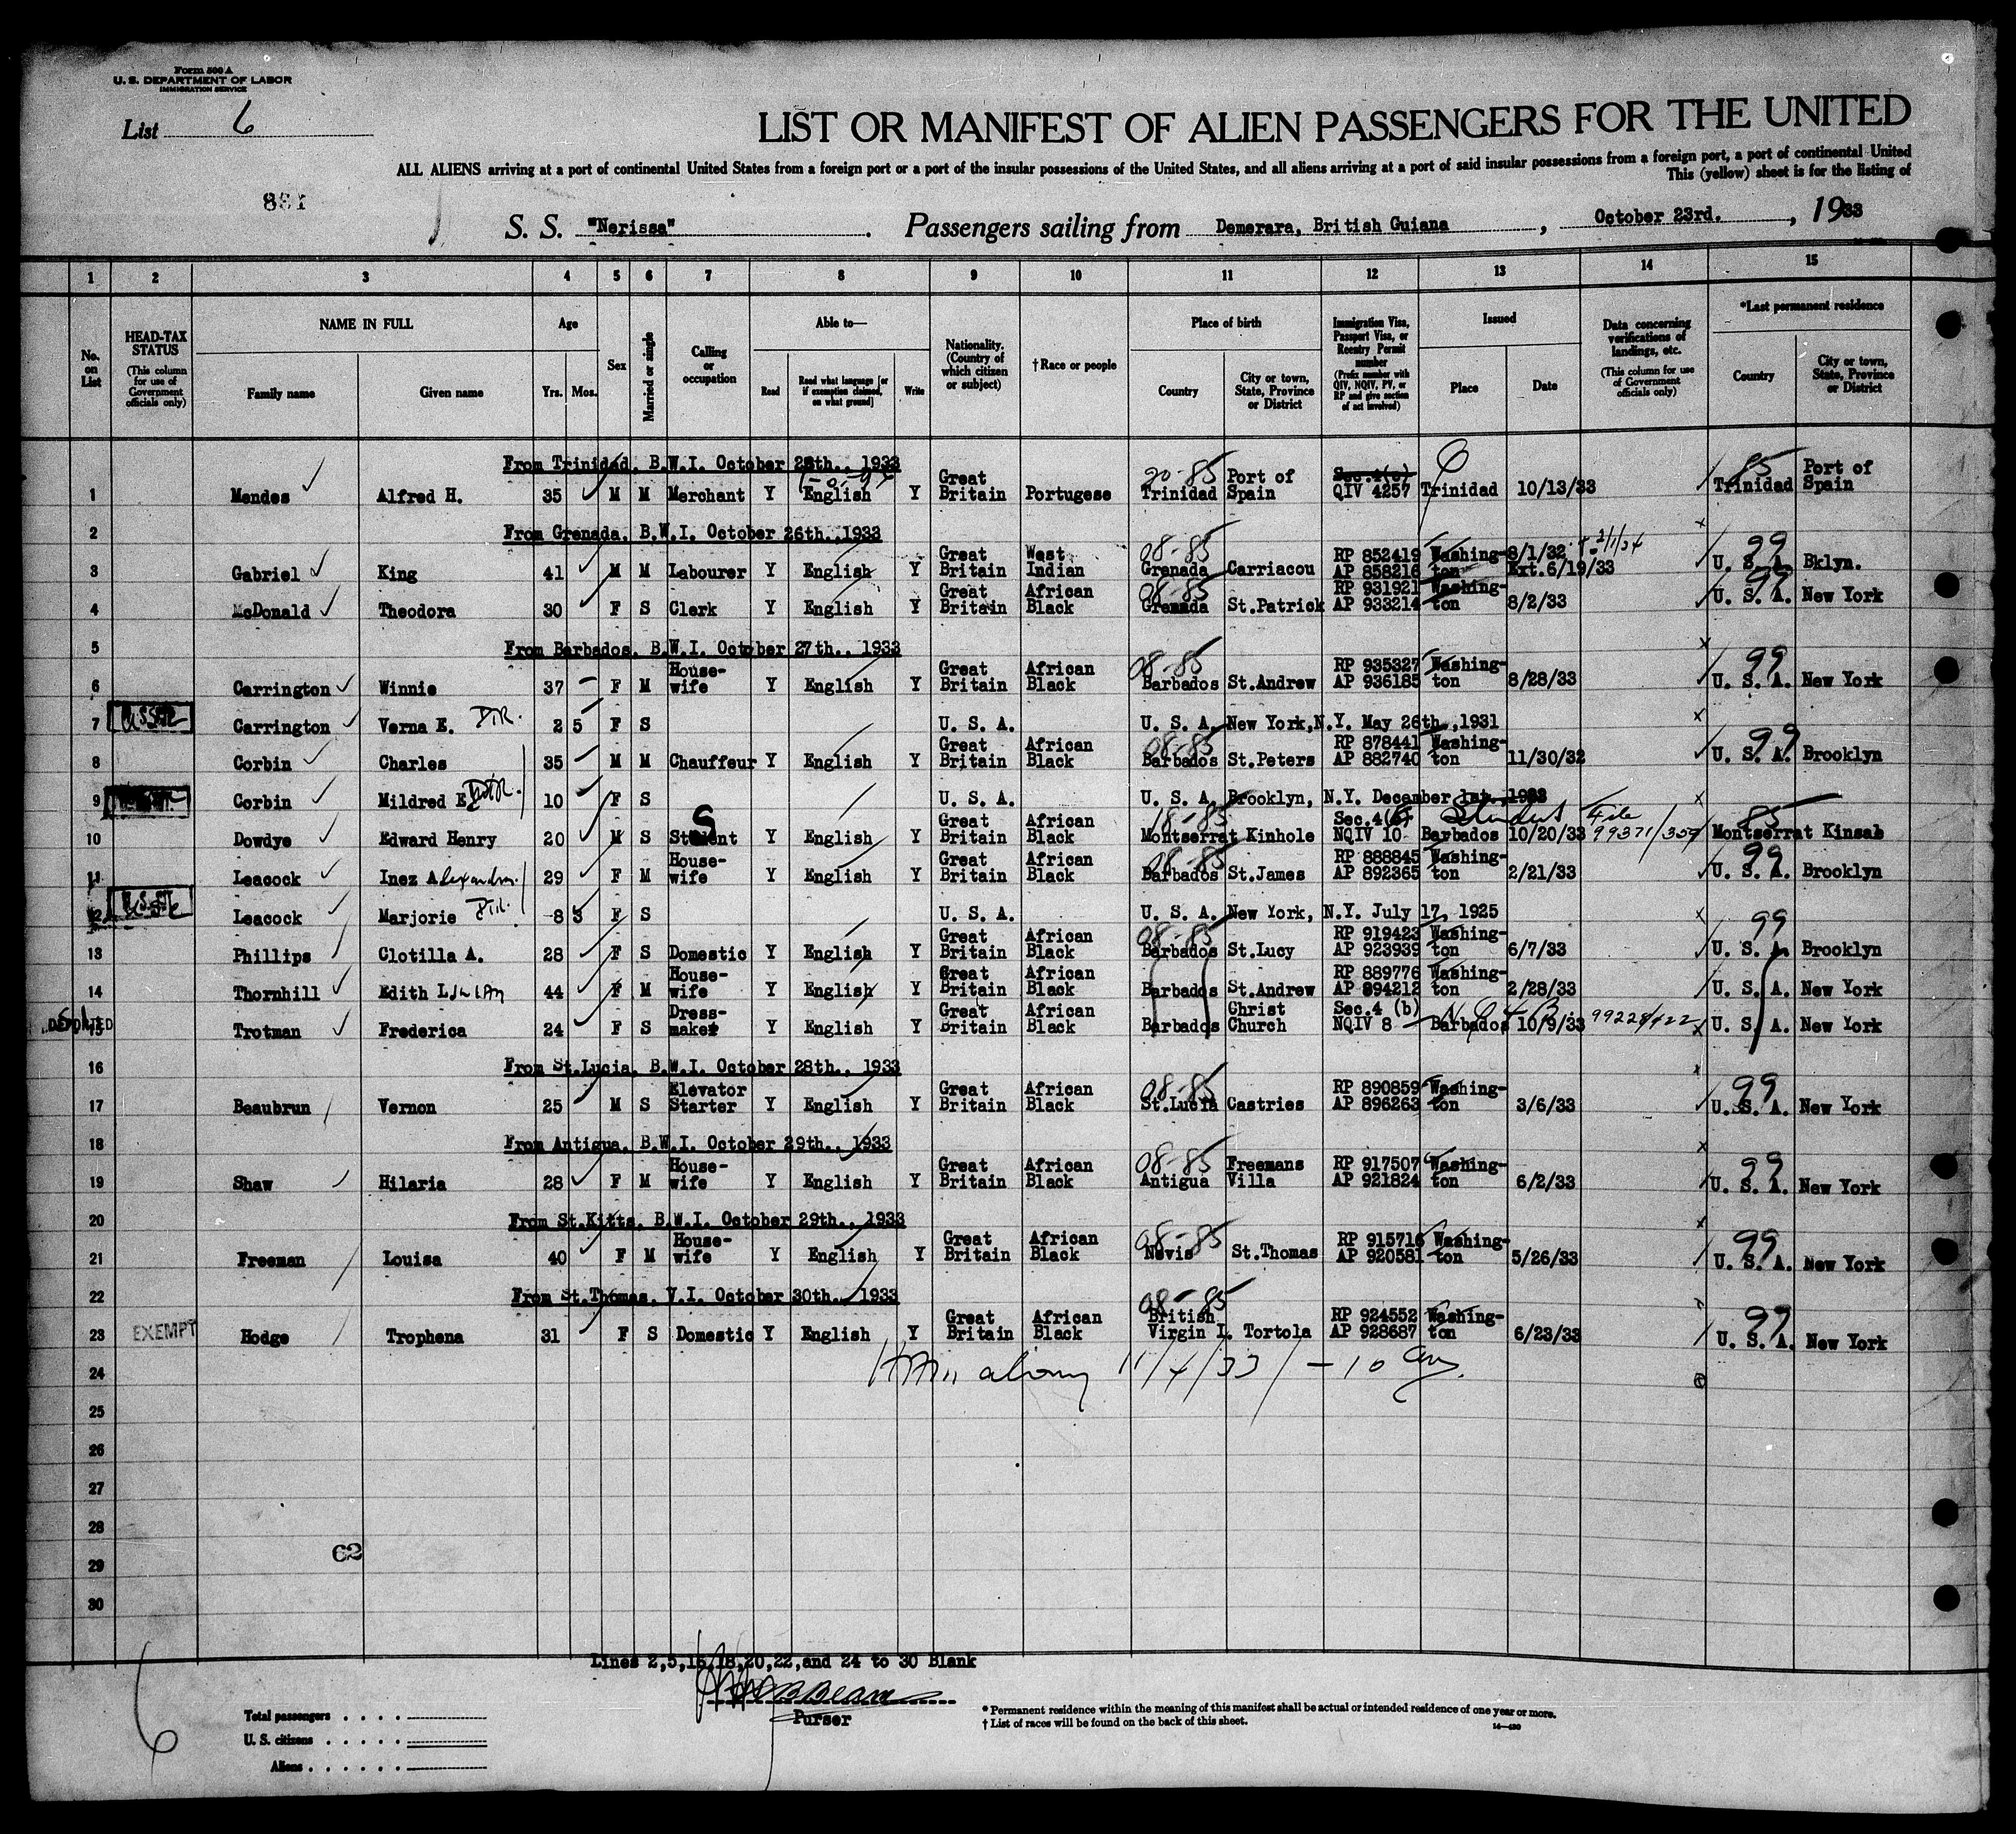 Form 500 A
U. S. DEPARTMENT OF LABOR
IMMIGRATION SERVICE
List 6
LIST OR MANIFEST OF ALIEN PASSENGERS FOR THE UNITED
ALL ALIENS arriving at a port of continental United States from a foreign port or a port of the insular possessions of the United States, and all aliens arriving at a port of said insular possessions from a foreign port, a port of continental United
This (yellow) sheet is for the listing of
S. S. "Nerissa". Passengers sailing from Demerara, British Guiana, October 23rd., 1933
1 2 3 4 5 6 7 8 9 10 11 12 13 14 15
No. on List
HEAD-TAX STATUS (This column for use of Government officials only)
NAME IN FULL Family name Given name
Age Yrs. Mos.
Sex
Married or single
Calling or occupation
Able to— Read Read what language [or if exemption claimed, on what ground] Write
Nationality. (Country of which citizen or subject)
† Race or people
Place of birth Country City or town, State, Province or District
Immigration Visa, Passport Visa, or Reentry Permit number (Prefix number with QIV, NQIV, PV, or RP and give section of act involved)
Issued Place Date
Data concerning verifications of landings, etc. (This column for use of Government officials only)
*Last permanent residence Country City or town, State, Province or District
From Trinidad, B.W.I. October 28th., 1933
1 Mendes Alfred H. 35 M M Merchant Y English Y Great Britain Portugese 20-85 Trinidad Port of Spain Sec.4(c) QIV 4257 Trinidad 10/13/33 85 Trinidad Port of Spain
2 From Grenada, B.W.I. October 26th., 1933
3 Gabriel King 41 M M Labourer Y English Y Great Britain West Indian 08-85 Grenada Carriacou RP 852419 AP 858216 Washington 8/1/32 Ext.6/19/33 99 U. S. A. Bklyn.
4 McDonald Theodora 30 F S Clerk Y English Y Great Britain African Black 08-85 Grenada St.Patrick RP 931921 AP 933214 Washington 8/2/33 99 U. S. A. New York
5 From Barbados, B.W.I. October 27th., 1933
6 Carrington Winnie 37 F M Housewife Y English Y Great Britain African Black 08-85 Barbados St.Andrew RP 935327 AP 936185 Washington 8/28/33 99 U. S. A. New York
7 Carrington Verna E. 2 5 F S U. S. A. U. S. A. New York, N.Y. May 26th., 1931
8 Corbin Charles 35 M M Chauffeur Y English Y Great Britain African Black 08-85 Barbados St.Peters RP 878441 AP 882740 Washington 11/30/32 99 U. S. A. Brooklyn
9 Corbin Mildred E 10 F S U. S. A. U. S. A. Brooklyn, N.Y. December 1st.
10 Dowdye Edward Henry 20 M S Student Y English Y Great Britain African Black 18-85 Montserrat Kinhole Sec.4(e) NQIV 10 Student File Barbados 10/20/33 99371/359 85 Montserrat Kinsale
11 Leacock Inez Alexandra. 29 F M Housewife Y English Y Great Britain African Black 08-85 Barbados St.James RP 888845 AP 892365 Washington 2/21/33 99 U. S. A. Brooklyn
12 Leacock Marjorie 8 3 F S U. S. A. U. S. A. New York, N.Y. July 17, 1925
13 Phillips Clotilla A. 28 F S Domestic Y English Y Great Britain African Black 08-85 Barbados St.Lucy RP 919423 AP 923939 Washington 6/7/33 99 U. S. A. Brooklyn
14 Thornhill Edith Lillian 44 F M Housewife Y English Y Great Britain African Black Barbados St.Andrew RP 889776 AP 894212 Washington 2/28/33 U. S. A. New York
15 Trotman Frederica 24 F S Dressmaker Y English Y Great Britain African Black Barbados Christ Church Sec.4 (b) NQIV 8 Barbados 10/9/33 U. S. A. New York
16 From St.Lucia, B.W.I. October 28th., 1933
17 Beaubrun Vernon 25 M S Elevator Starter Y English Y Great Britain African Black 08-85 St.Lucia Castries RP 890859 AP 896263 Washington 3/6/33 99 U. S. A. New York
18 From Antigua, B.W.I. October 29th., 1933
19 Shaw Hilaria 28 F M Housewife Y English Y Great Britain African Black 08-85 Antigua Freemans Villa RP 917507 AP 921824 Washington 6/2/33 99 U. S. A. New York
20 From St.Kitts, B.W.I. October 29th., 1933
21 Freeman Louisa 40 F M Housewife Y English Y Great Britain African Black 08-85 Nevis St.Thomas RP 915716 AP 920581 Washington 5/26/33 99 U. S. A. New York
22 From St.Thomas, V.I. October 30th., 1933
23 EXEMPT Hodge Trophena 31 F S Domestic Y English Y Great Britain African Black 08-85 British Virgin I. Tortola RP 924552 AP 928687 Washington 6/23/33 99 U. S. A. New York
24 11/4/33 - 10
25
26
27
28
62
29
30
Lines 2,5,16,18,20,22,and 24 to 30 Blank
Purser
Total passengers
U. S. citizens
Aliens
6
* Permanent residence within the meaning of this manifest shall be actual or intended residence of one year or more.
† List of races will be found on the back of this sheet.